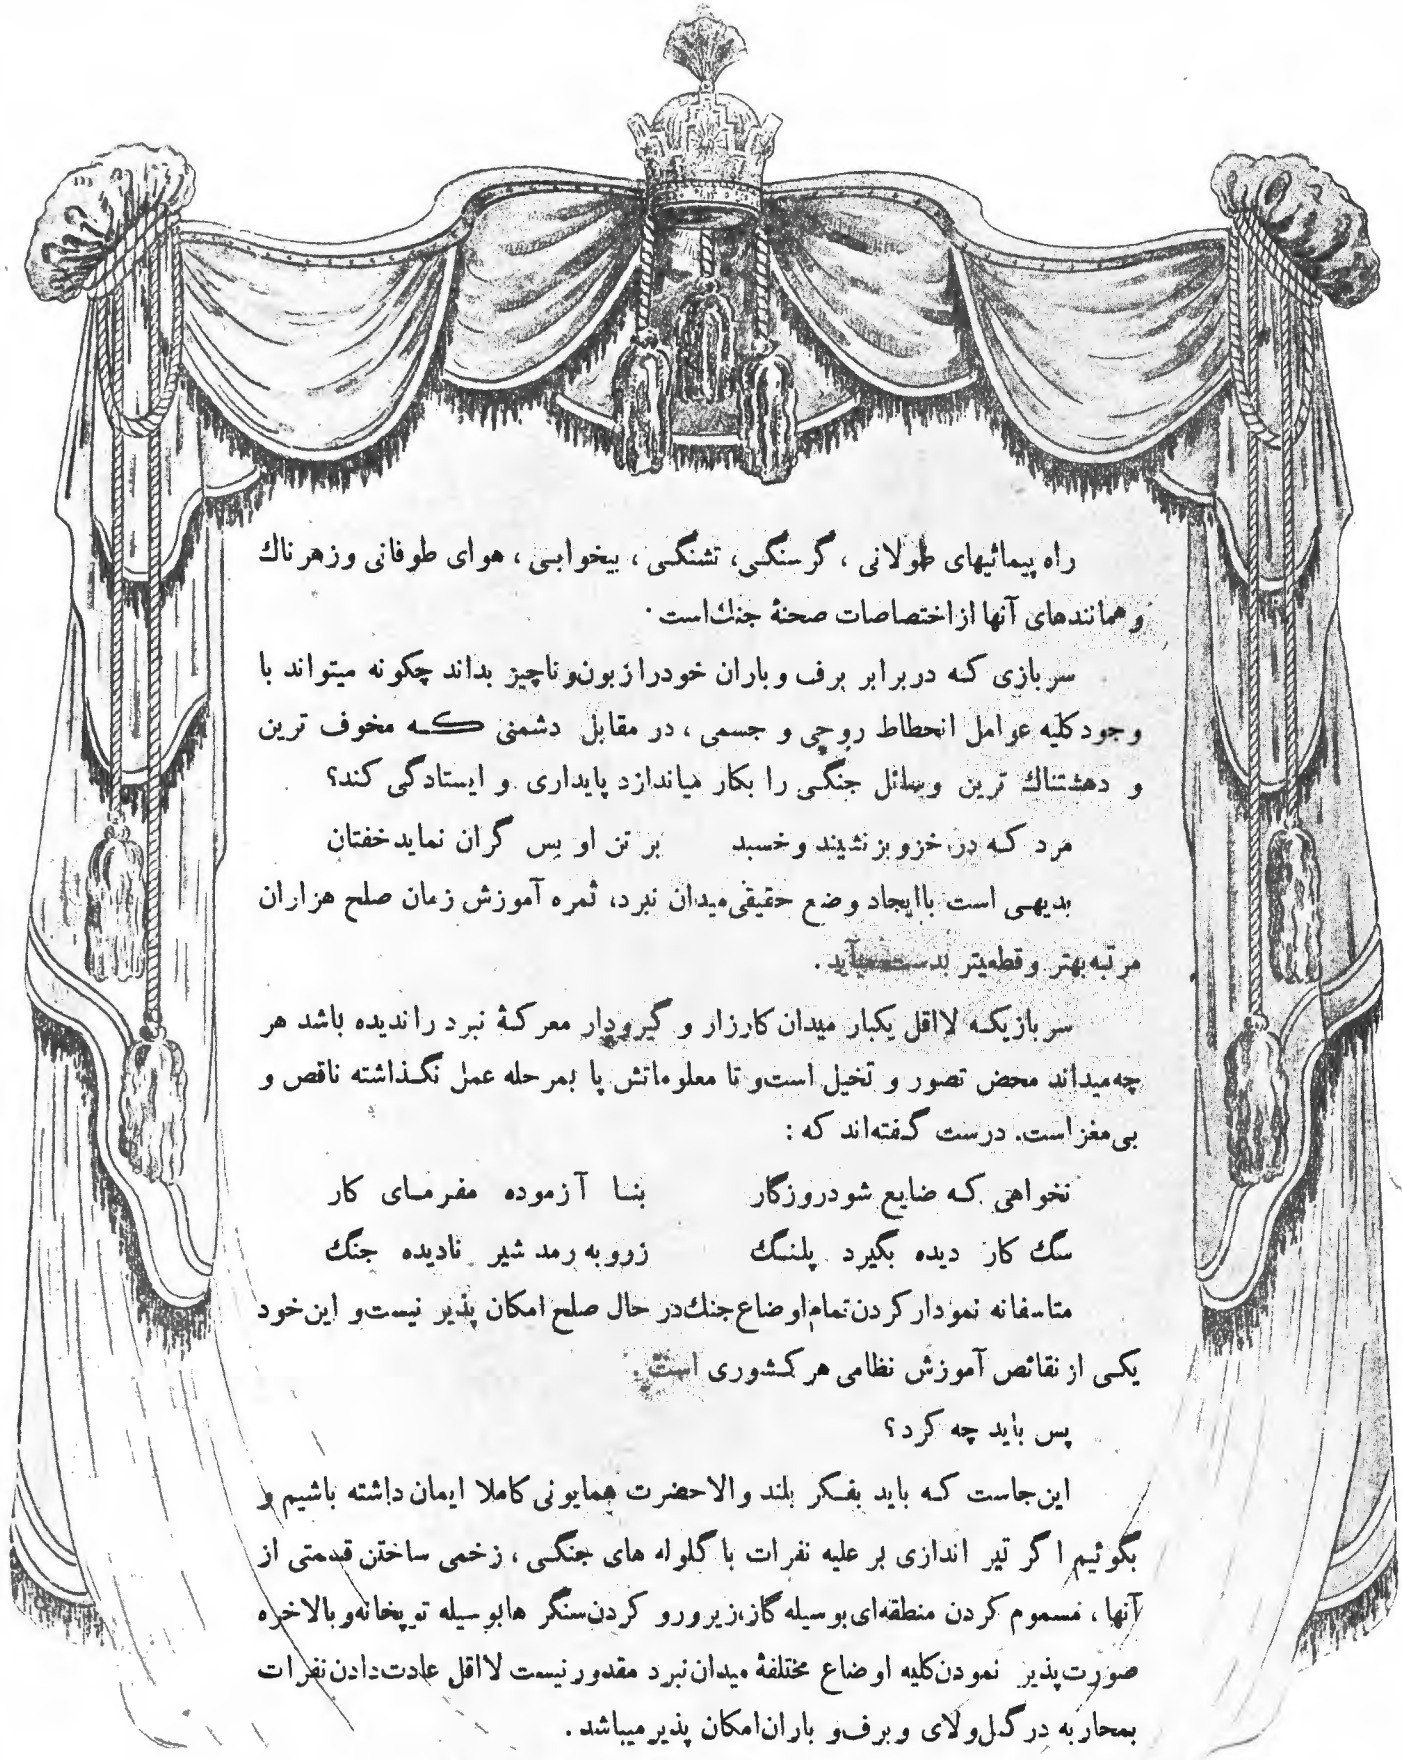 راه پیمائیهای طولانی ، گرسنگی، تشنگی ، بیخوابی ، هوای طوفانی و زهر ناك
و همانندهای آنها از اختصاصات صحنهٔ جنك است .
سربازی که در برابر برف و باران خود را زبون و ناچیز بداند چگونه میتواند با
وجود کلیه عوامل انحطاط روحی و جسمی ، در مقابل دشمنی که مخوف ترین
و دهشتناك ترین وسائل جنگی را بکار میاندازد پایداری و ایستادگی کند؟
مرد که در خز و بز نشیند و خسبد بر تن او بس گران نماید خفتان
بدیهی است با ایجاد وضع حقیقی میدان نبرد، ثمره آموزش زمان صلح هزاران
مرتبه بهتر و قطعیتر بدست میآید .
سربازیکه لااقل یکبار میدان کارزار و گیرودار معرکهٔ نبرد را ندیده باشد هر
چه میداند محض تصور و تخیل است و تا معلوماتش پا بمرحله عمل نگذاشته ناقص و
بی مغز است. درست گفته‌اند که :
نخواهی که ضایع شود روزگار بنا آزموده مفرمای کار
سگ کار دیده بگیرد پلنگ ز روبه رمد شیر نادیده جنگ
متاسفانه نمودار کردن تمام اوضاع جنك در حال صلح امکان پذیر نیست و این خود
یکی از نقائص آموزش نظامی هر کشوری است .
پس باید چه کرد ؟
این جاست که باید بفکر بلند والاحضرت همایونی کاملا ایمان داشته باشیم و
بگوئیم اگر تیر اندازی بر علیه نفرات با گلوله های جنگی ، زخمی ساختن قسمتی از
آنها ، مسموم کردن منطقه‌ای بوسیله گاز، زیر و رو کردن سنگر ها بوسیله توپخانه و بالاخره
صورت پذیر نمودن کلیه اوضاع مختلفهٔ میدان نبرد مقدور نیست لااقل عادت دادن نفرات
بمحاربه در گل و لای و برف و باران امکان پذیر میباشد .